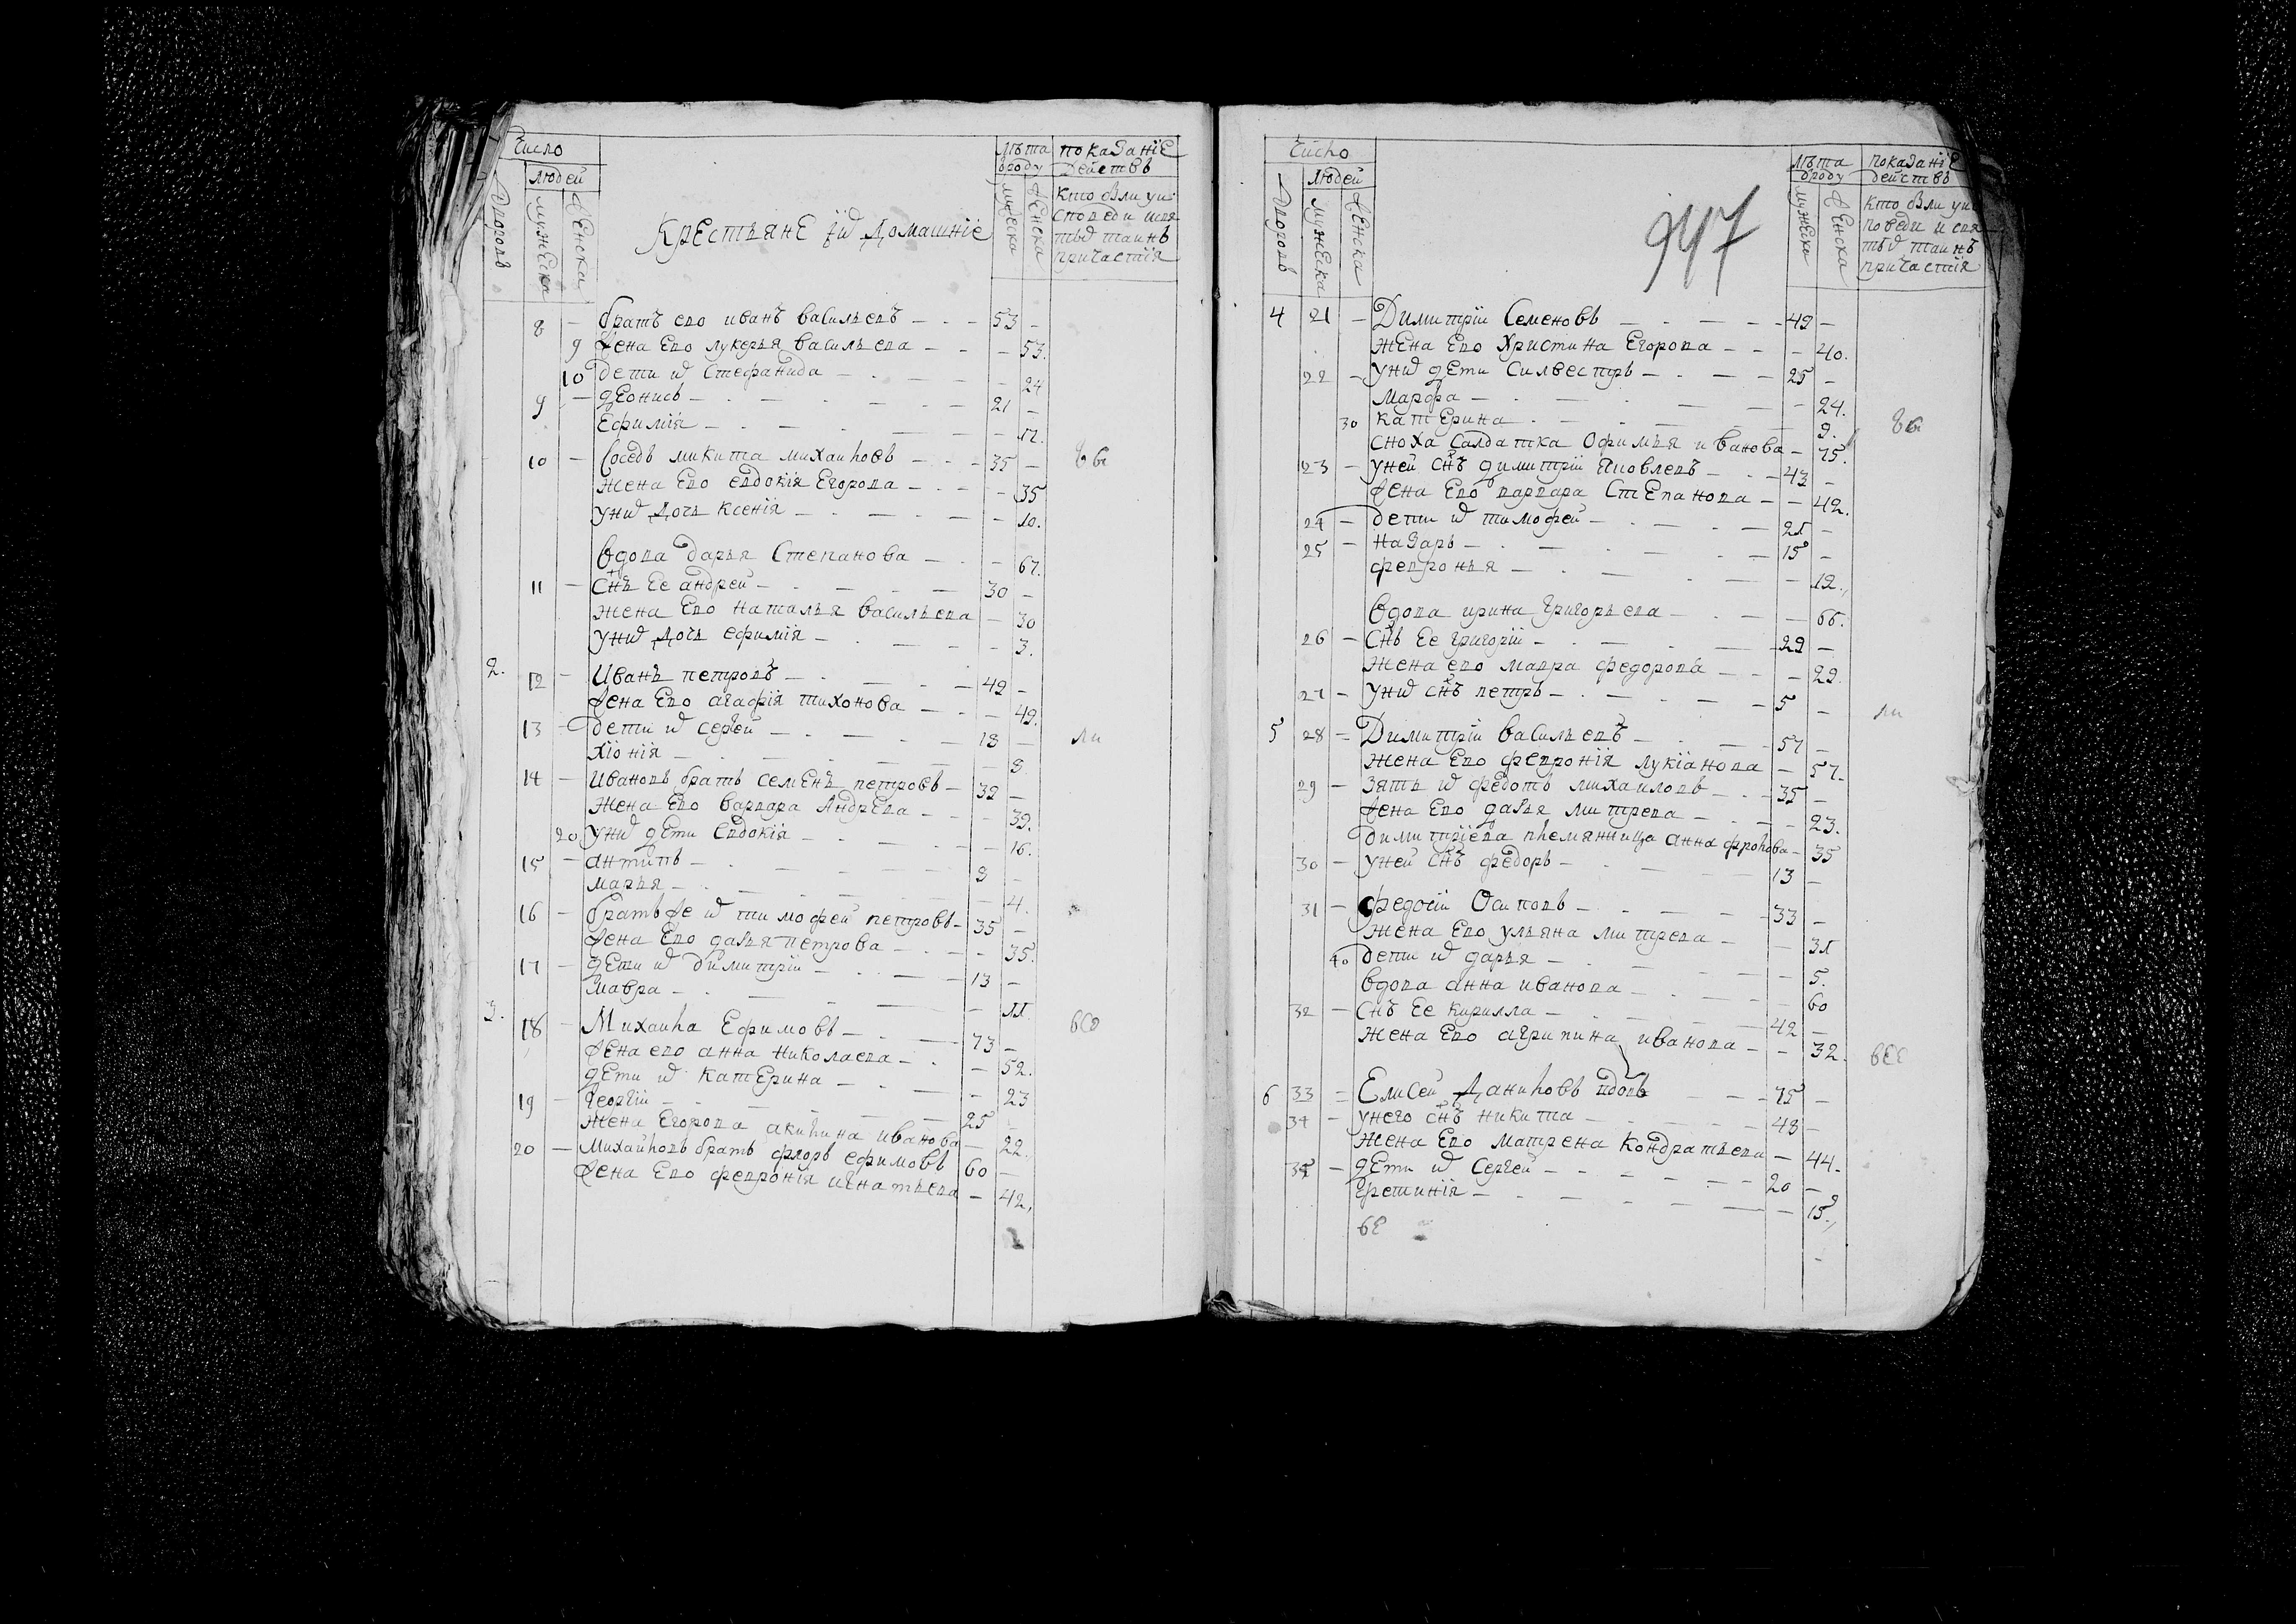 Число
Людей
Дворовъ
мужеска
женска
Крестьяне їѿ домашнїе
лѣта
ѿроду
мужеска
женска
показанїе
действъ
кто были уис
споведи исвя
тыѿ таинъ
причастїя
8 — братъ ево иванъ васильевъ — 53 —
9 жена Ево лукерья васильева — — 53.
10 дети ѿ Стефанида — — 24
9 — деонисъ — 21 —
Ефимїя — — 12.
10 — Соседъ микита михаиловъ — 35 —
жена Ево евдокїя Егорова — — 35
униѿ дочь ксенїя — — 10.
вдова дарья Степанова — — 67.
11 — Снъ Ее андрей — 30 —
жена Ево наталья васильева — 30
униѿ дочь ефимїя — — 3.
2. 12 — Иванъ петровъ — 49 —
жена Ево агафїя тихонова — — 49.
13 — дети ѿ сергей — 18 —
хїонїя — — 8
14 — Ивановъ братъ семенъ петровъ — 39 —
жена Ево варвара Андрева — — 39.
20 униѿ дети Евдокїя — — 16.
15 — антипъ — 9 —
марья — — 4.
16 — братъ же ѿ тимофей петровъ — 35 —
жена Ево дарья петрова — — 35.
17 — дети ѿ димитрїи — 13 —
Мавра — — 11.
3. 18 — Михаила Ефимовъ — 73 —
жена ево анна николаева — — 52.
дети ѿ катерина — — 23
19 — Георгїи — 25
жена Егорова акилина иванова — 22.
20 — михаиловъ братъ флоръ ефимовъ 60 —
жена Ево февронїя игнатьева — 42,
Число
Людей
Дворовъ
мужеска
женска
947
лѣта
ѿроду
мужеска
женска
показанїе
действъ
кто были уис
поведи и свя
тыѿ таинъ
причастїя
4 21 — Димитрїи Семеновъ — 49 —
жена Ево Христина Егорова — — 40.
22 — униѿ дети Силвестръ — 25 —
Марфа — — 24.
30 катерина — — 9.
сноха Салдатка Офимья иванова — 75.
23 — уней снъ димитрїи Яковлевъ — 43 —
жена Ево варвара Степанова — — 42.
24 — дети ѿ тимофей — 21 —
25 — Назаръ — 15 —
февронья — — 12.,
вдова ирина григорьева — — 66.
26 — Снъ Ее григорїи — 29 —
жена ево мавра федорова — — 29.
27 — униѿ снъ петръ — 5 —
5 28 — Димитрїи васильевъ — 57 —
жена Ево февронїя лукїанова — 57.
29 — зять ѿ федотъ михаиловъ — 35 —
жена Ево дарья митрева — — 23.
димитрїева племянница анна фролова — 35
30 — уней снъ федоръ — 13 —
31 — федосїи Осиповъ — 33 —
жена Ево ульяна митрева — — 31
40 дети ѿ дарья — — 5.
вдова анна иванова — — 60
32 — снъ Ее кирилла — 42 —
жена Ево агрипина иванова — — 32.
6 33 — Елисей Даниловъ вдовъ — 75 —
34 — унего снъ никита — 48 —
жена Ево матрена кондратьева — 44.
35 — дети ѿ Сергей — 20 —
Фетинїя — — 15.,